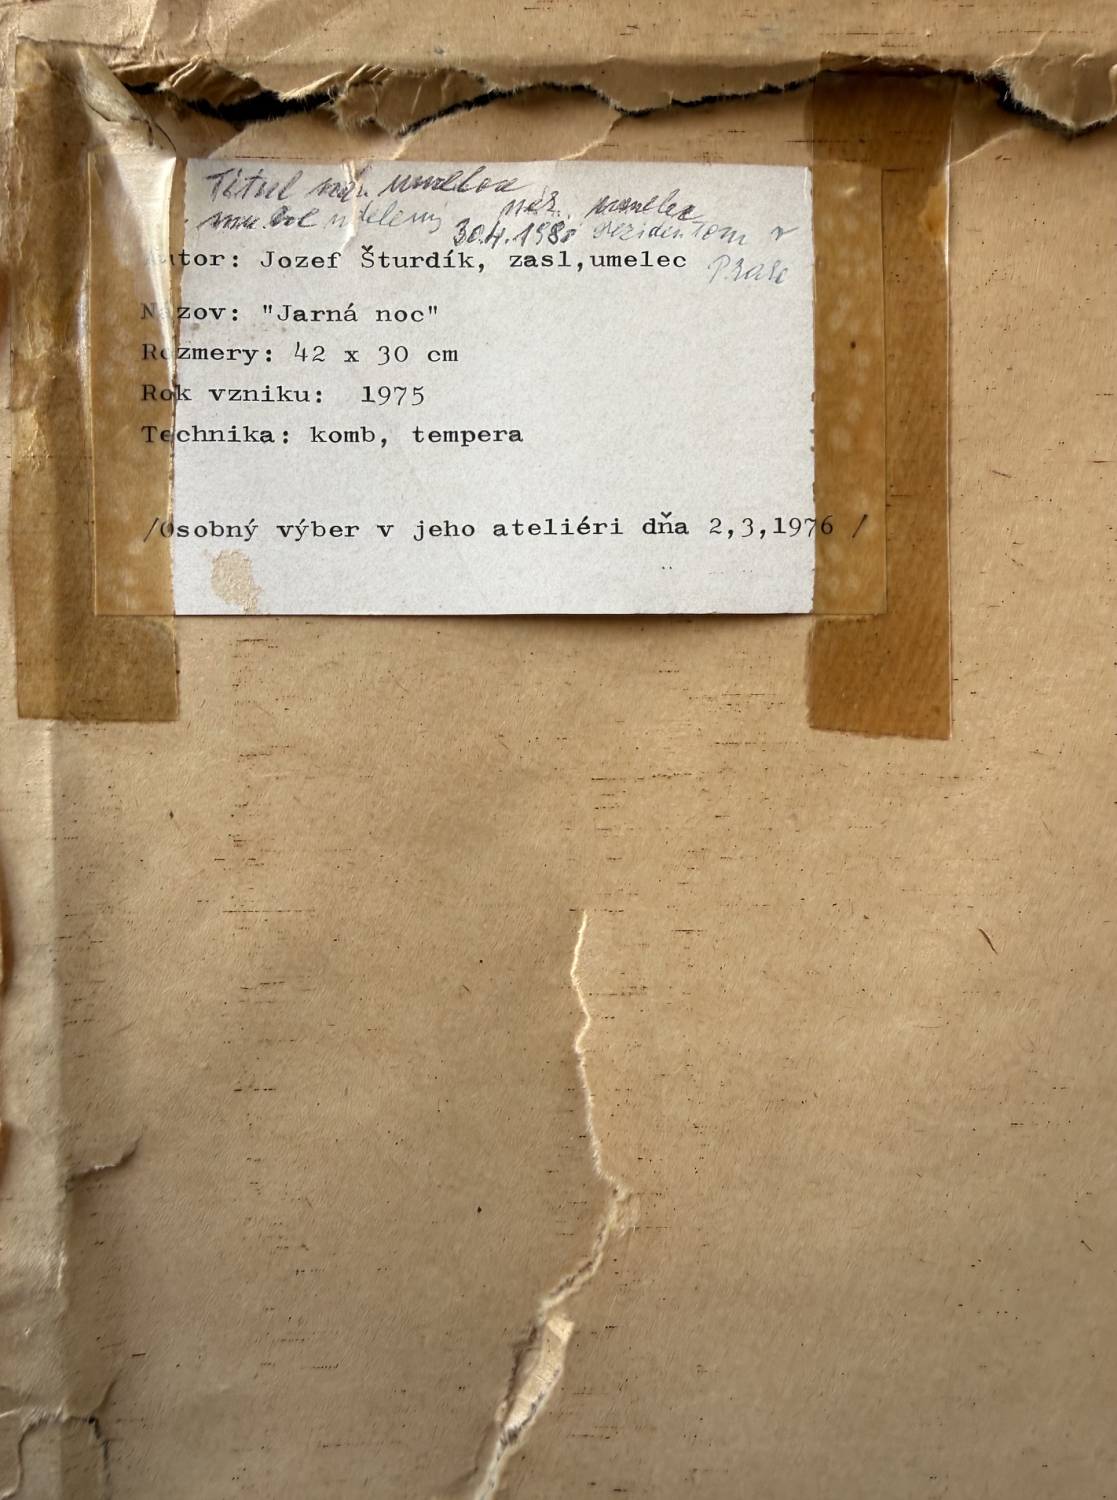 Titul nár. umelca
mu bol udelený nár. umelec
30.4.1980 prezidentom v
Autor: Jozef Šturdík, zasl,umelec Praze
Názov: "Jarná noc"
Rozmery: 42 x 30 cm
Rok vzniku: 1975
Technika: komb, tempera
/Osobný výber v jeho ateliéri dňa 2,3,1976 /